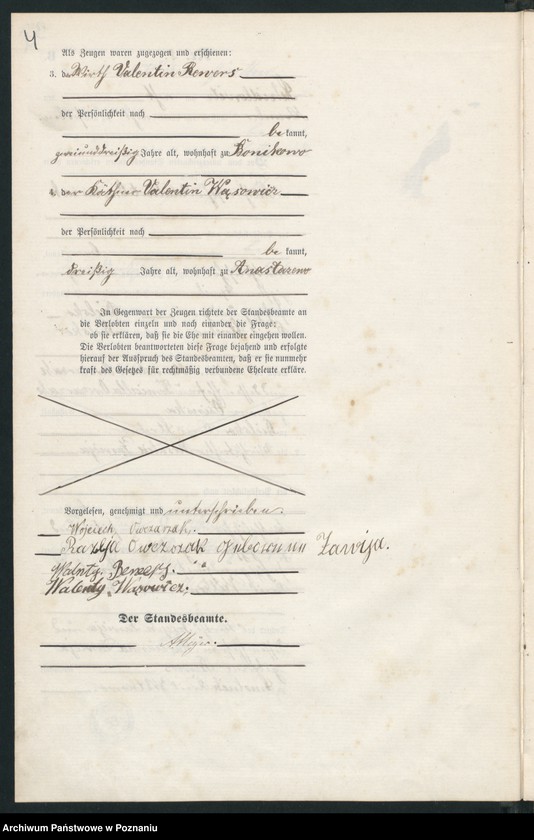 4
Als Zeugen waren zugezogen und erschienen:
3. der Wirth Valentin Rewers
der Persönlichkeit nach
be kannt,
zweiunddreißig Jahre alt, wohnhaft zu Konikowo
4. der Käthner Valentin Wąsowicz
der Persönlichkeit nach
be kannt,
dreißig Jahre alt, wohnhaft zu Anastazewo
In Gegenwart der Zeugen richtete der Standesbeamte an
die Verlobten einzeln und nach einander die Frage:
ob sie erklären, daß sie die Ehe mit einander eingehen wollen.
Die Verlobten beantworteten diese Frage bejahend und erfolgte
hierauf der Ausspruch des Standesbeamten, daß er sie nunmehr
kraft des Gesetzes für rechtmäßig verbundene Eheleute erkläre.
Vorgelesen, genehmigt und unterschrieben.
Wojciech Owczarzak.
Owczorzak Zawija.
Walenty Wąsowicz.
Der Standesbeamte.
Archiwum Państwowe w Poznaniu